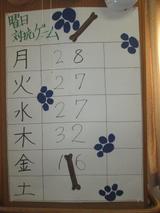 曜日
対抗ゲーム
月 28
火 27
水 27
木 32
金 16
土